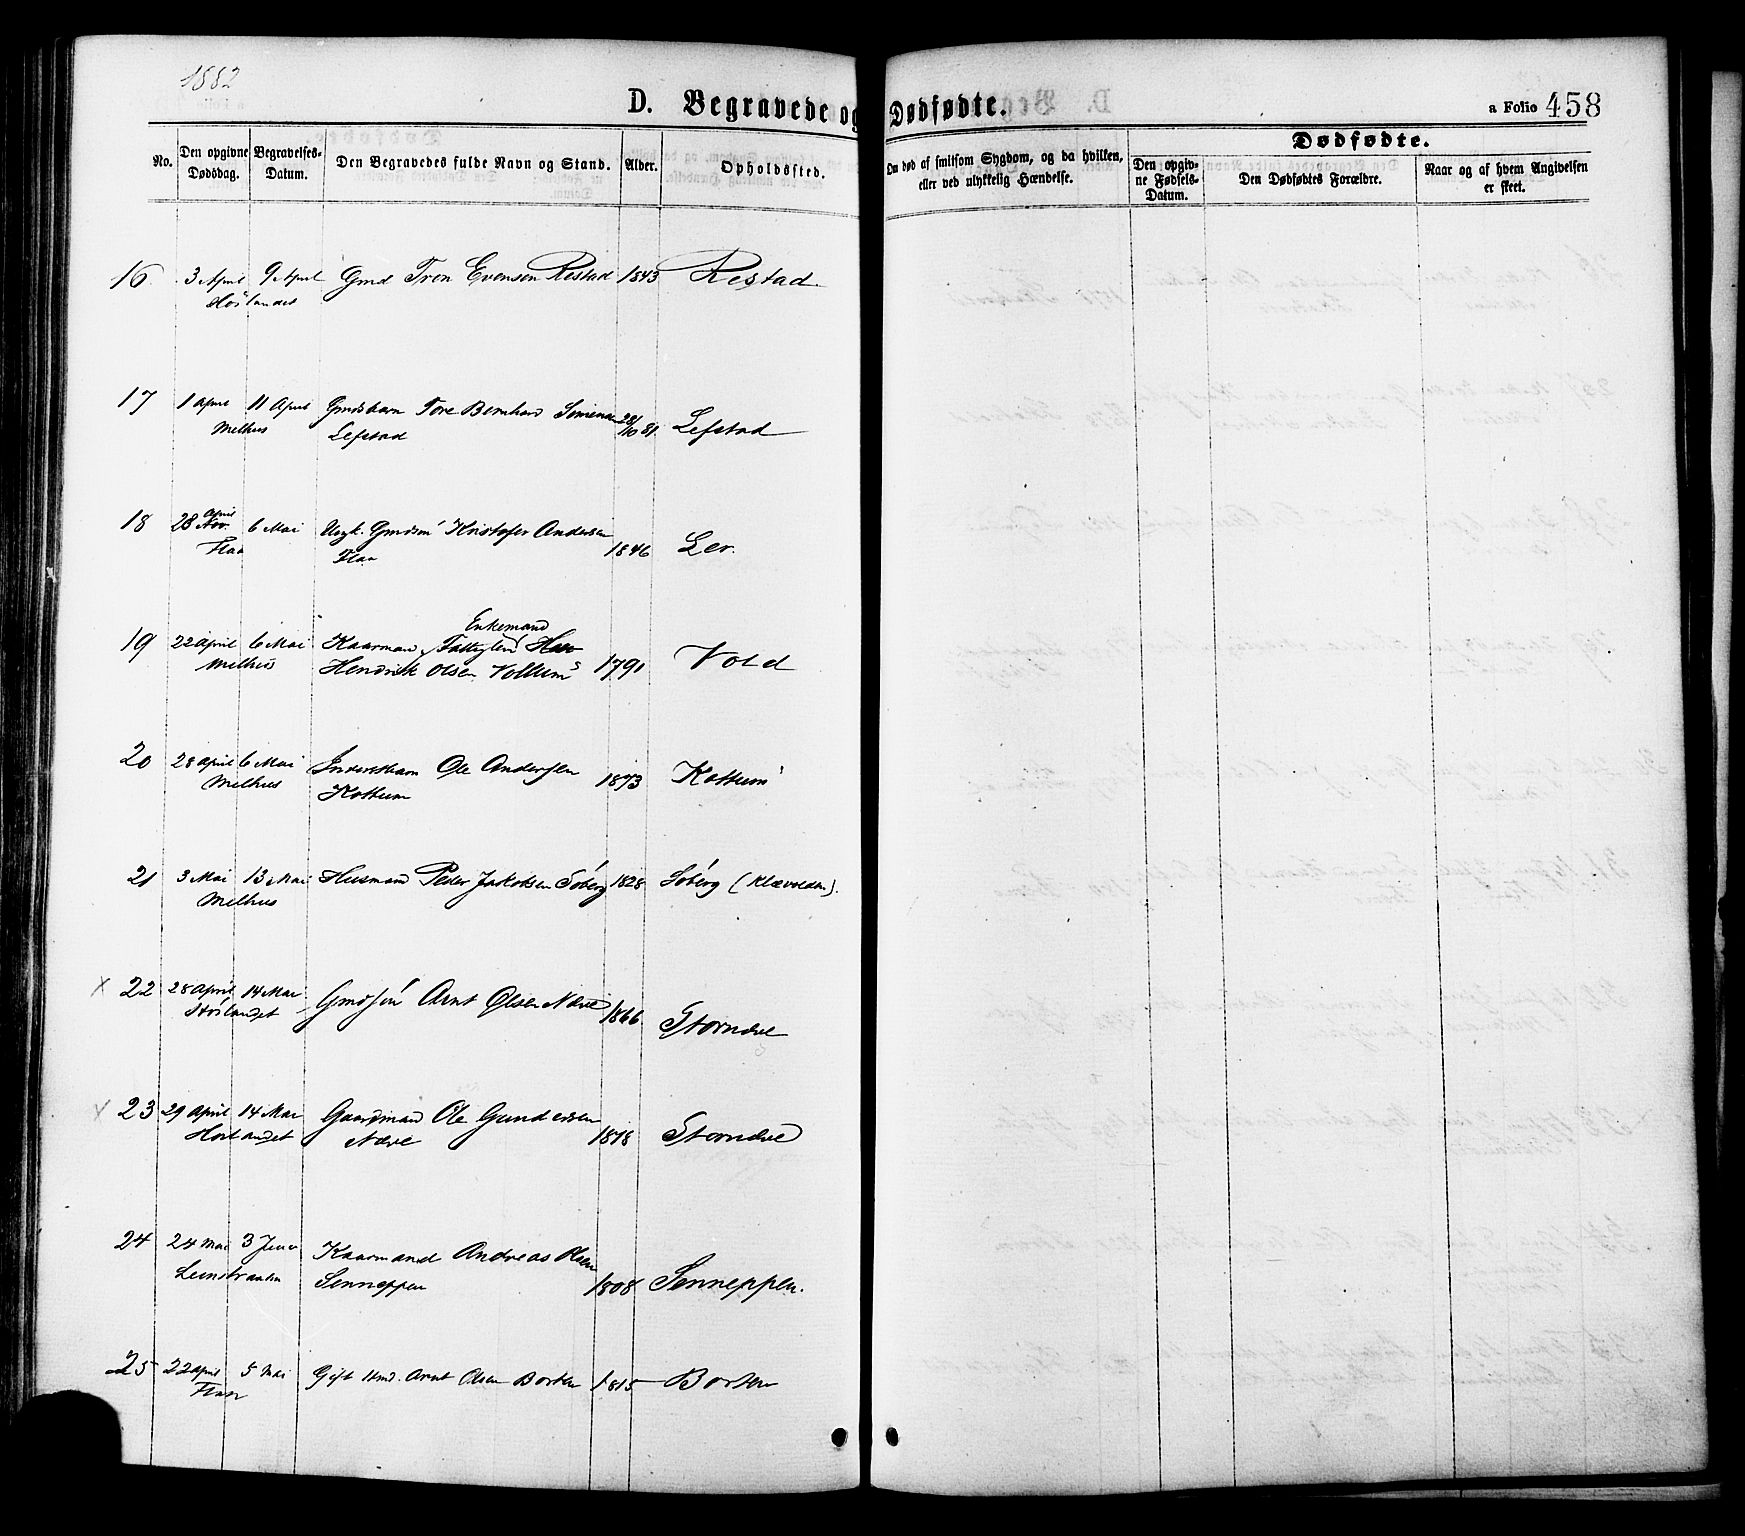 1882
D. Begravede og Dødfødte.
a Folio 458
No.
Den opgivne Dødsdag.
Begravelses-Datum.
Den Begravedes fulde Navn og Stand.
Alder.
Opholdssted.
Om død af smitsom Sygdom, og da hvilken, eller ved ulykkelig Hændelse.
Dødfødte.
Den opgiv-ne Fødsels-Datum.
Den Dødfødtes Forældre.
Naar og af hvem Angivelsen er skeet.
16 3 April 9 April Gmd Evensen Restad 1843 Restad.
17 1 April 11 April Tore Bernhard 28/10 81 Lefstad
Melhus Lefstad
18 28 April 6 Mai Ungk. Kristofer Andersen 1846 Ler.
Flaa Flaa
Enkemand
19 22 April 6 Mai Kaarmand
Melhus Hendrik Olsen 1791 Vold
20 28 April 6 Mai Ole Andersen 1873 Kottum
Melhus Kottum
21 3 Mai 13 Mai Husmand Peder Jakobsen Søberg 1828 Søberg
Melhus
x 22 28 April 14 Mai Arnt Olsen Næve 1866
x 23 29 April 14 Mai Gaardmand Ole Gundersen
Næve
24 24 Mai 3 Juni Kaarmand Andreas Olsen
Leinstranden Senneppen 1808 Senneppen.
25 22 April 5 Mai Gift Arnt Olsen Borten 1815 Borten
Flaa